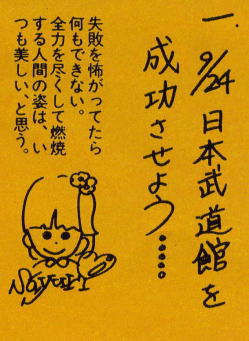 一. 9/24 日本武道館を
成功させよう……
失敗を怖がってたら
何もできない。
全力を尽くして燃焼
する人間の姿は、い
つも美しい、と思う。